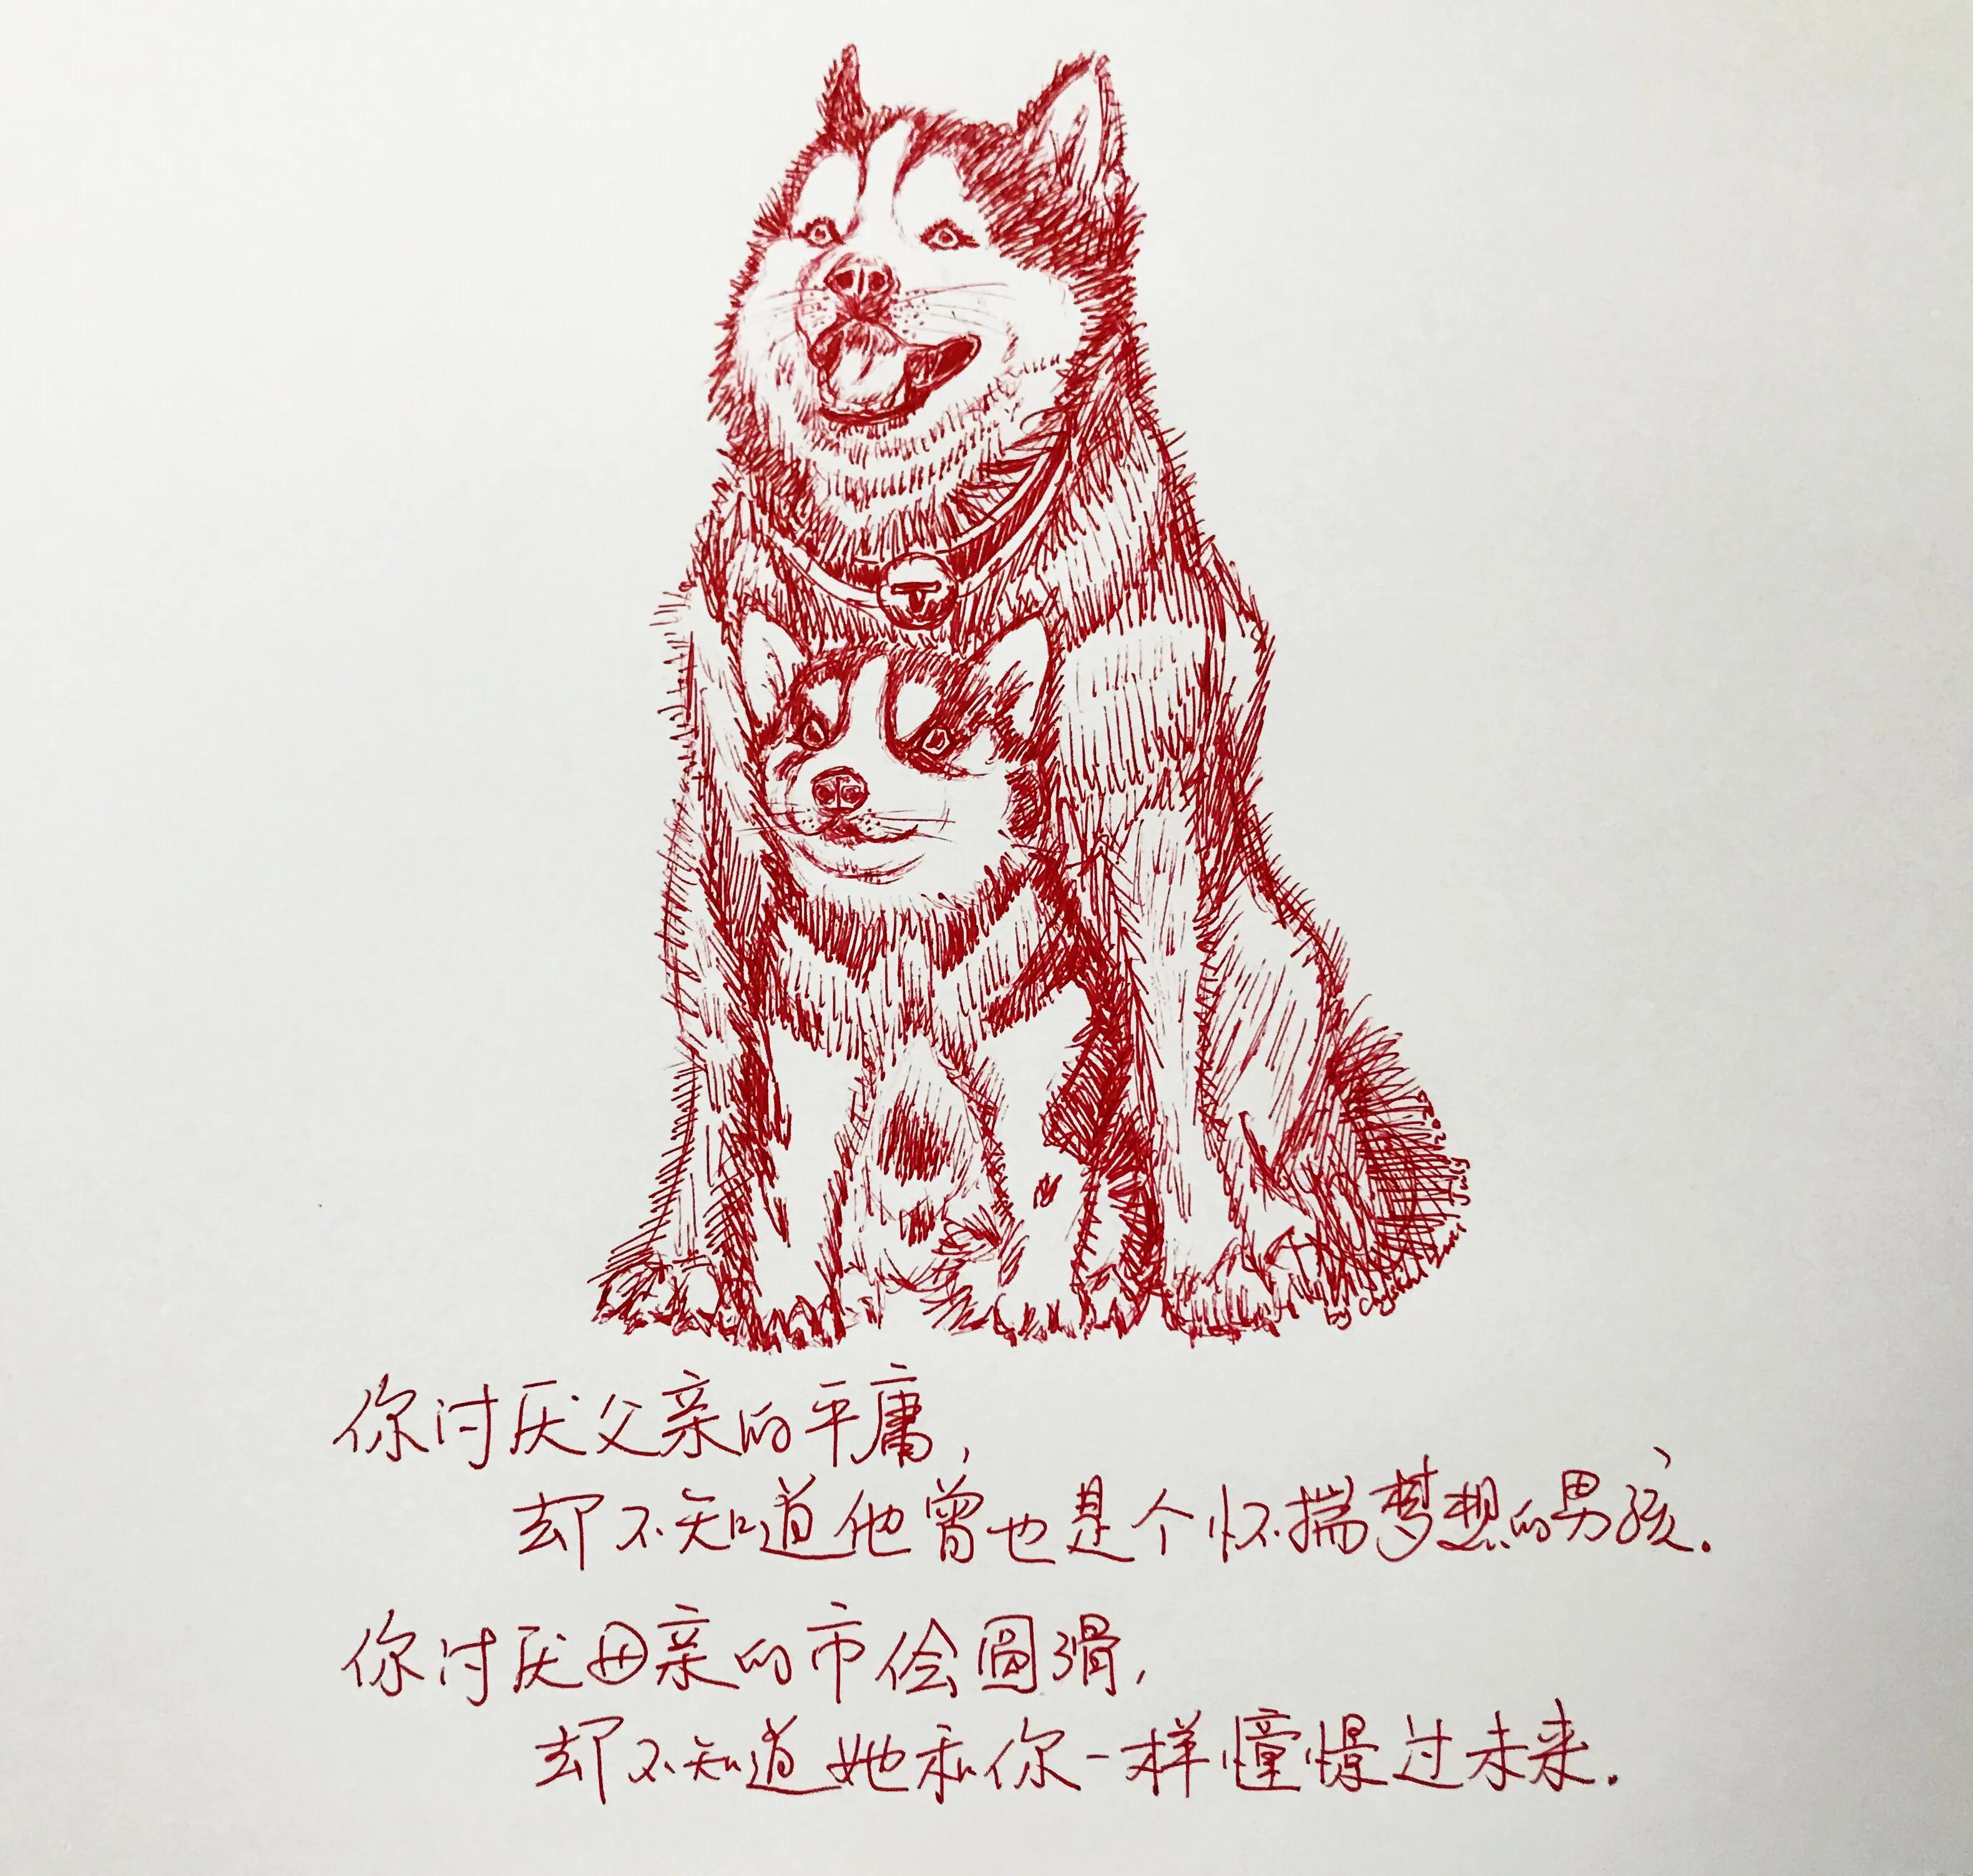 你讨厌父亲的平庸,
却不知道他曾也是个怀揣梦想的男孩.
你讨厌母亲的市侩圆滑,
却不知道她和你一样憧憬过未来.
by
July